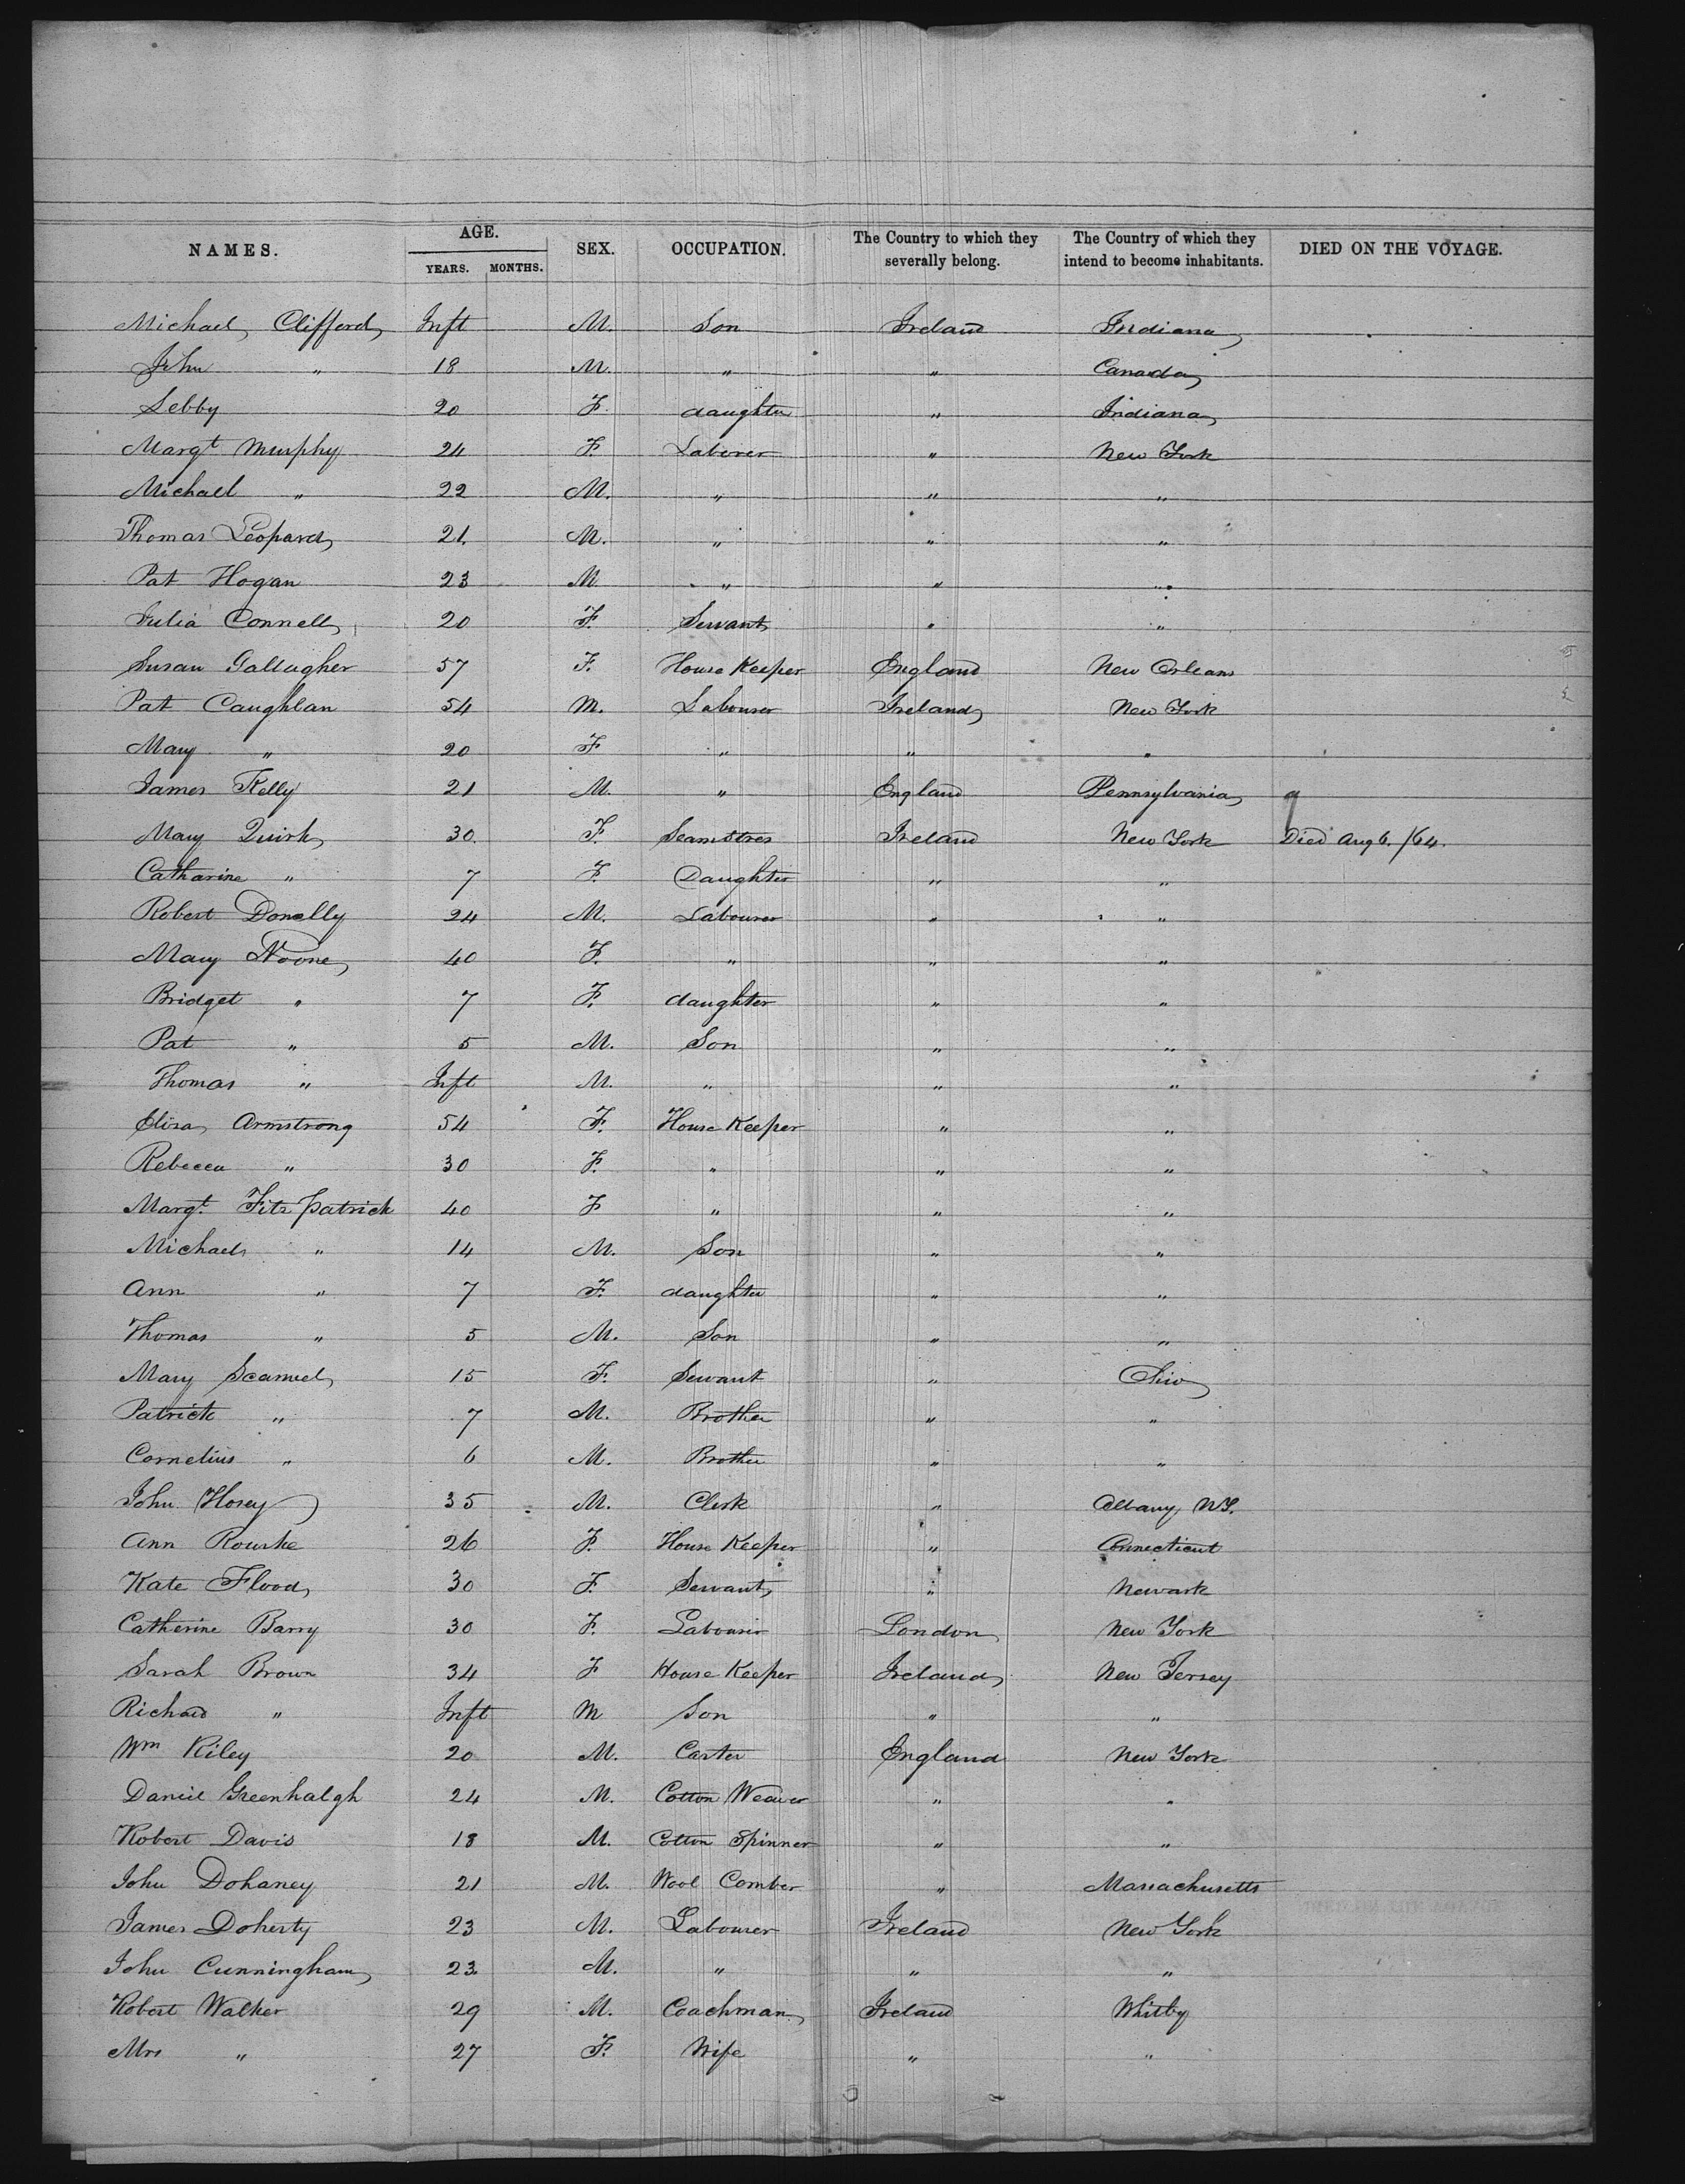 NAMES. AGE. YEARS. MONTHS. SEX. OCCUPATION. The Country to which they severally belong. The Country of which they intend to become inhabitants. DIED ON THE VOYAGE.
Michael Clifford Inft M. Son Ireland Indiana
John " 18 M. " " Canada
Sebby 20 F. daughter " Indiana
Margt Murphy 24 F. Laborer " New York
Michael " 22 M. " " "
Thomas Leopard 21. M. " " "
Pat Hogan 23 M " " "
Julia Connell 20 F. Servant " "
Susan Gallagher 57 F. House Keeper England New Orleans
Pat Caughlan 54 M. Labourer Ireland New York
Mary " 20 F " " "
James Kelly 21 M. " England Pennsylvania
Mary Quirk 30. F. Seamstres Ireland New York Died Aug 6. /64.
Catharine " 7 F. Daughter " "
Robert Donally 24 M. Labourer " "
Mary Noone 40 F. " " "
Bridget " 7 F. daughter " "
Pat " 5 M. Son " "
Thomas " Inft M. " " "
Eliza Armstrong 54 F. House Keeper " "
Rebecca " 30 F. " " "
Margt. Fitz patrick 40 F " " "
Michael " 14 M. Son " "
Ann " 7 F. daughter " "
Thomas " 5 M. Son " "
Mary Scamuel 15 F. Servant " Ohio
Patrick " 7 M. Brother " "
Cornelius " 6 M. Brother " "
John Hosey 35 M. Clerk " Albany N.Y.
Ann Rourke 26 F. House Keeper " Connecticut
Kate Flood 30 F. Servant " Newark
Catherine Barry 30 F. Labourer London New York
Sarah Brown 34 F House Keeper Ireland New Jersey
Richard " Inft M Son " "
Wm Riley 20 M. Carter England New York
Daniel Greenhalgh 24 M. Cotton Weaver " "
Robert Davis 18 M. Cotton Spinner " "
John Dohaney 21 M. Wool Comber " Massachusetts
James Doherty 23 M. Labourer Ireland New York
John Cunningham 23. M. " " "
Robert Walker 29 M. Coachman Ireland Whitby
Mrs " 27 F. Wife " "